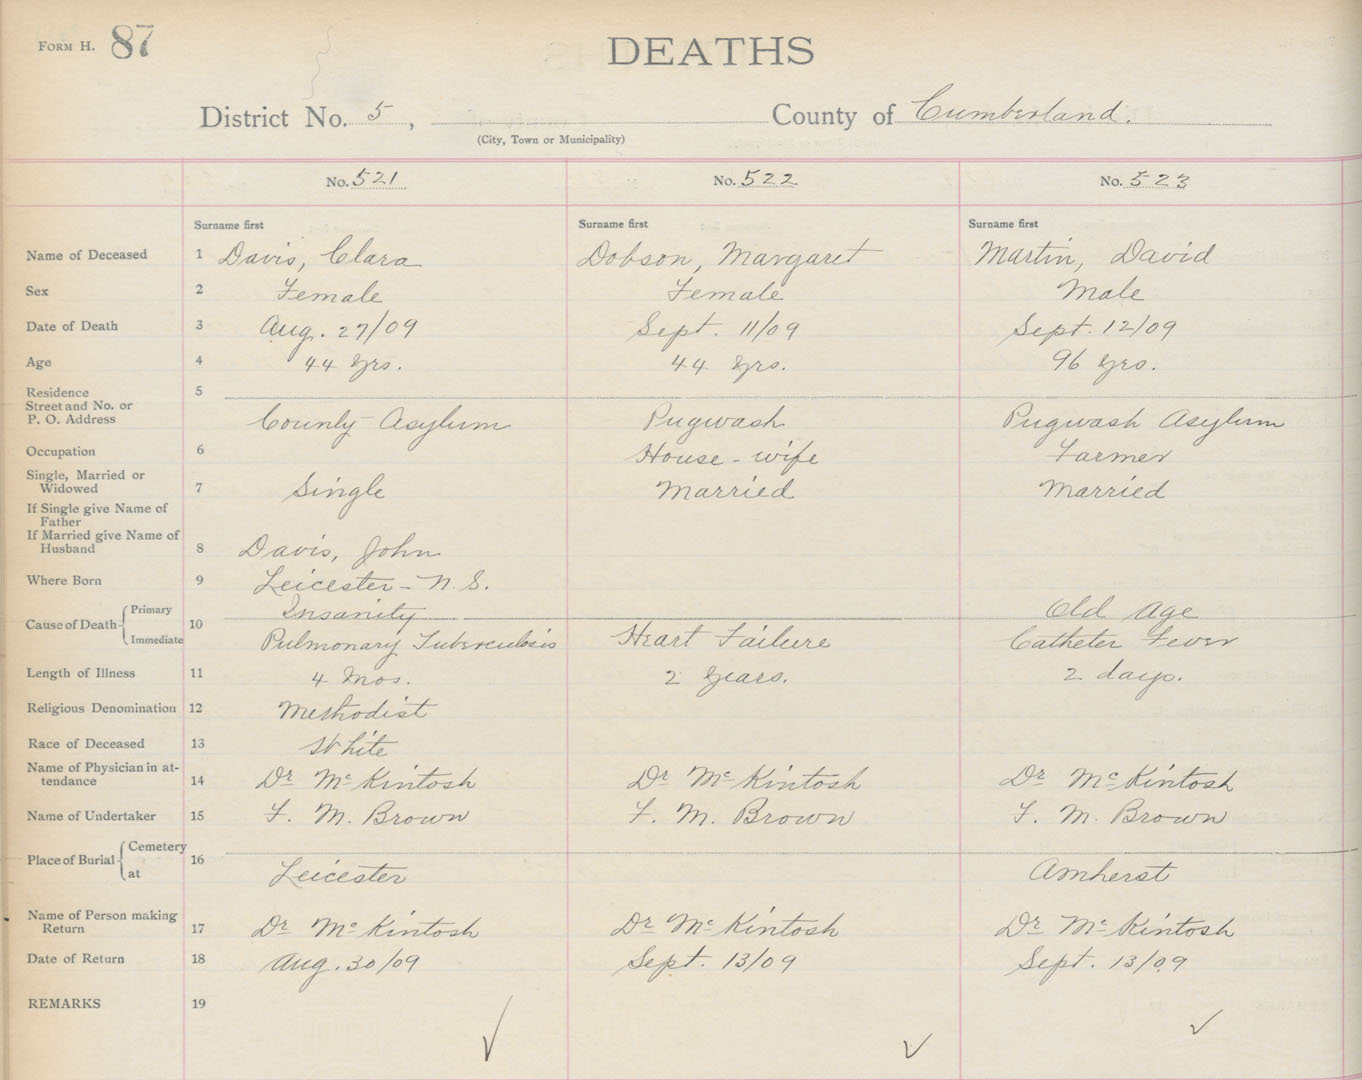 FORM H. 87
DEATHS
District No. 5, County of Cumberland.
(City, Town or Municipality)
No. 521 No. 522 No. 523
Surname first Surname first Surname first
Name of Deceased 1 Davis, Clara Dobson, Margaret Martin, David
Sex 2 Female Female Male
Date of Death 3 Aug. 27/09 Sept. 11/09 Sept. 12/09
Age 4 44 yrs. 44 yrs. 96 yrs.
Residence 5
Street and No. or
P. O. Address County Asylum Pugwash Pugwash Asylum
Occupation 6 House-wife Farmer
Single, Married or
Widowed 7 Single Married Married
If Single give Name of
Father
If Married give Name of
Husband 8 Davis, John
Where Born 9 Leicester - N. S.
Cause of Death 10
Primary Insanity Old Age
Immediate Pulmonary Tuberculosis Heart Failure Catheter Fever
Length of Illness 11 4 Mos. 2 Years. 2 days.
Religious Denomination 12 Methodist
Race of Deceased 13 White
Name of Physician in at-
tendance 14 Dr McKintosh Dr McKintosh Dr McKintosh
Name of Undertaker 15 F. M. Brown F. M. Brown F. M. Brown
Place of Burial 16
Cemetery
at Leicester Amherst
Name of Person making
Return 17 Dr McKintosh Dr McKintosh Dr McKintosh
Date of Return 18 Aug. 30/09 Sept. 13/09 Sept. 13/09
REMARKS 19